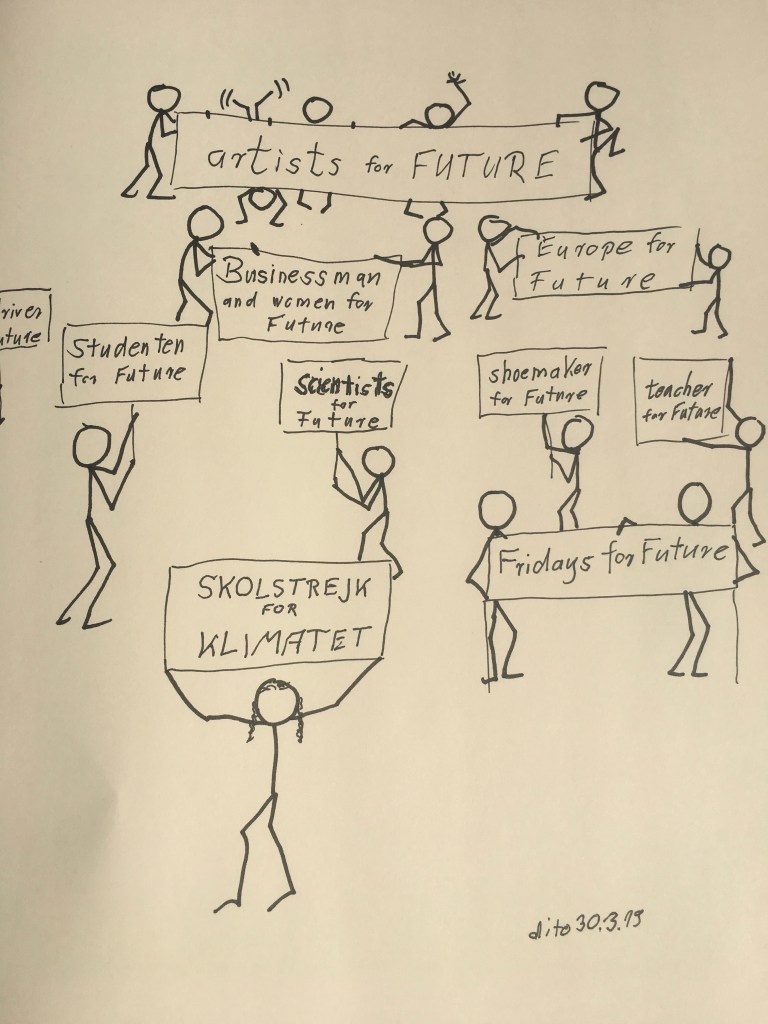 artists for FUTURE
Businessman
and women for
Future
Europe for
Future
river
uture
Studenten
for Future
Scientists
for
Future
shoemaker
for Future
teacher
for Future
Fridays for Future
SKOLSTREJK
FOR
KLIMATET
dito 30.3.19